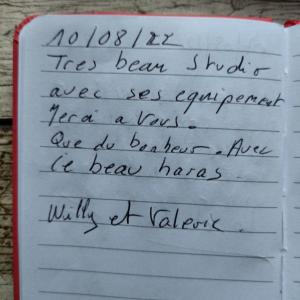 10/08/22
Tres beau Studio
avec ses equipement
Merci a Vous.
Que du bonheur. Avec
ce beau haras
Willy et Valerie.